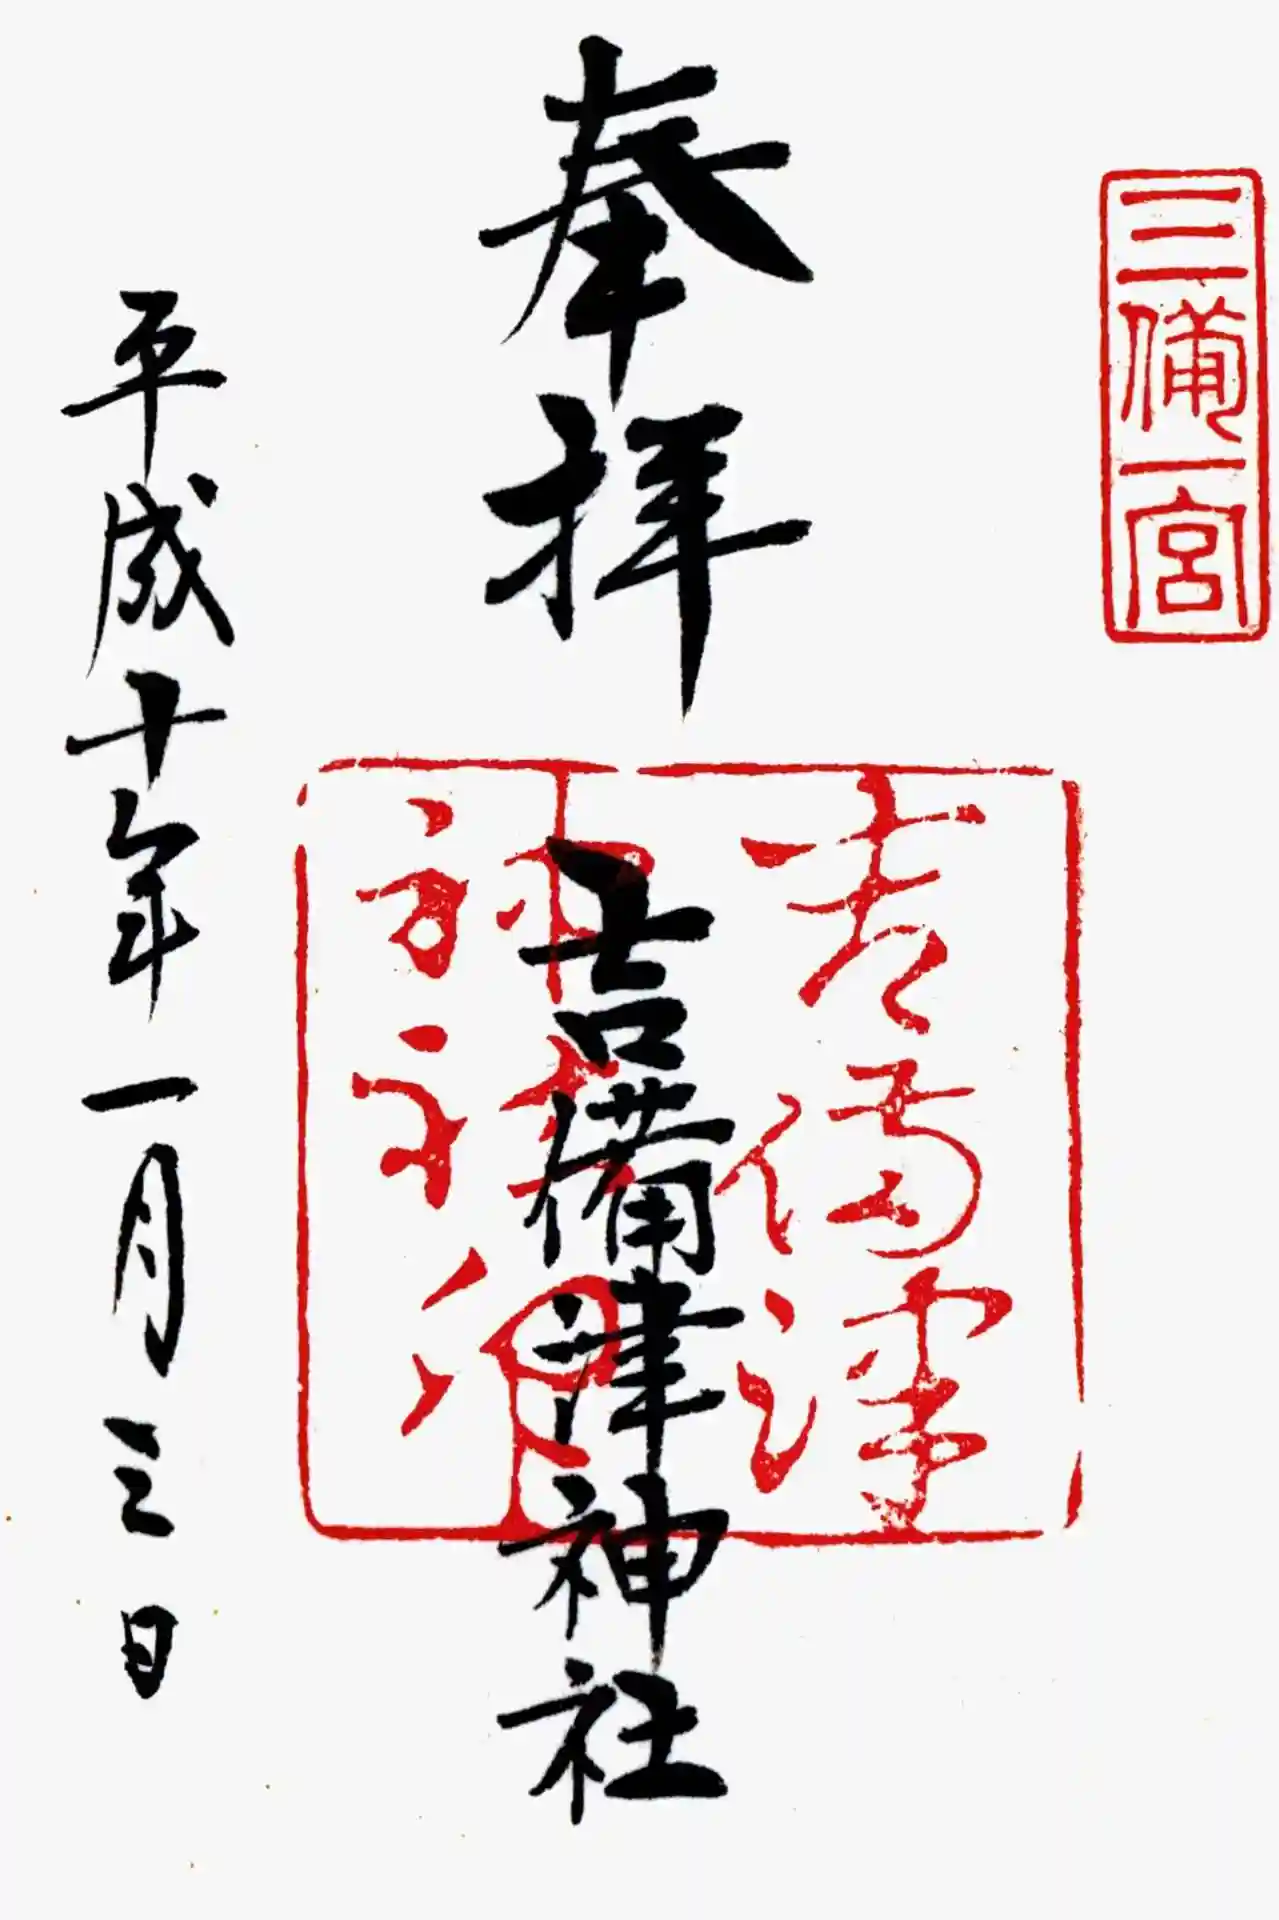 三備一宮
奉拝
吉備津神社
吉備津
神社
平成十年一月三日